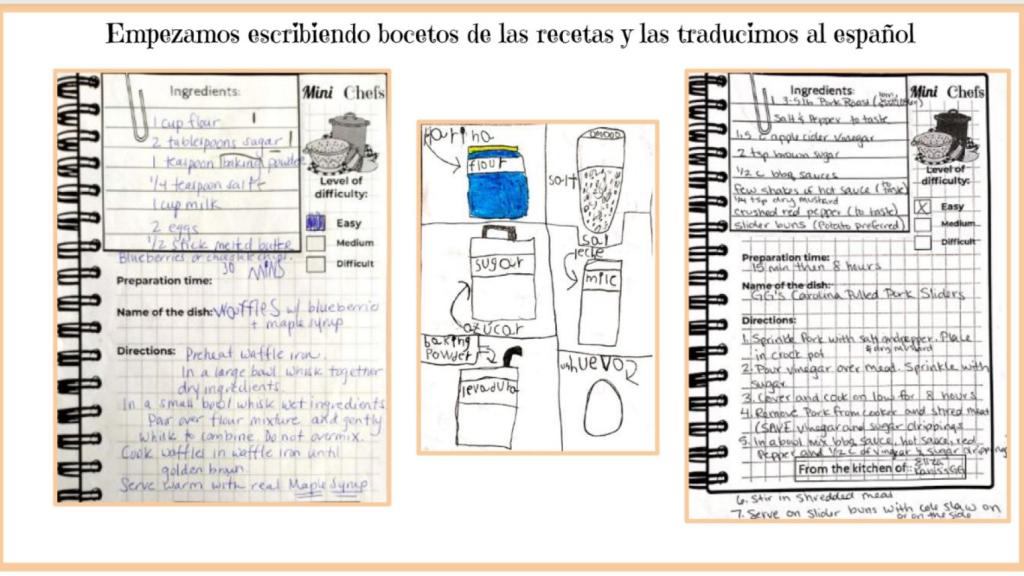 Empezamos escribiendo bocetos de las recetas y las traducimos al español
Ingredients:
1 cup flour
2 tablespoons sugar
1 teaspoon baking powder
1/4 teaspoon salt
1 cup milk
2 eggs
1/2 stick melted butter
Blueberries or chocolate chips.
Mini Chefs
Level of
difficulty:
Easy
Medium
Difficult
30 MINS
Preparation time:
Name of the dish: Waffles w/ blueberries
+ maple syrup
Directions: Preheat waffle iron.
In a large bowl whisk together
dry ingredients.
In a small bowl whisk wet ingredients
Pour over flour mixture and gently
whisk to combine. Do not overmix.
Cook waffles in waffle iron until
golden brown.
Serve warm with real Maple Syrup
Harina
flour
salt
sal
sugar
azucar
leche
milc
baking
powder
levadura
huevo
Ingredients:
1 3-5 lb Pork Roast
Salt & Pepper to taste
1.5 c apple cider vinegar
2 tsp brown sugar
1/2 c bbq sauces
few shakes of hot sauce (to taste)
1/4 tsp dry mustard
crushed red pepper (to taste)
slider buns (Potato preferred)
Mini Chefs
Level of
difficulty:
Easy
Medium
Difficult
Preparation time:
15 min then 8 hours
Name of the dish:
GG's Carolina Pulled Pork Sliders
Directions:
1. Sprinkle Pork with salt and pepper. Place
& dry mustard
in crock pot
2. Pour vinegar over meat. Sprinkle with
sugar
3. Cover and cook on low for 8 hours
4. Remove Pork from cooker and shred meat
(SAVE vinegar and sugar drippings
5. In a bowl mix bbq sauce, hot sauce, red
Pepper and 1/2 c of vinegar & sugar drippings
From the kitchen of:
6. Stir in shredded meat
7. Serve on Slider buns with cole slaw on
or on the side